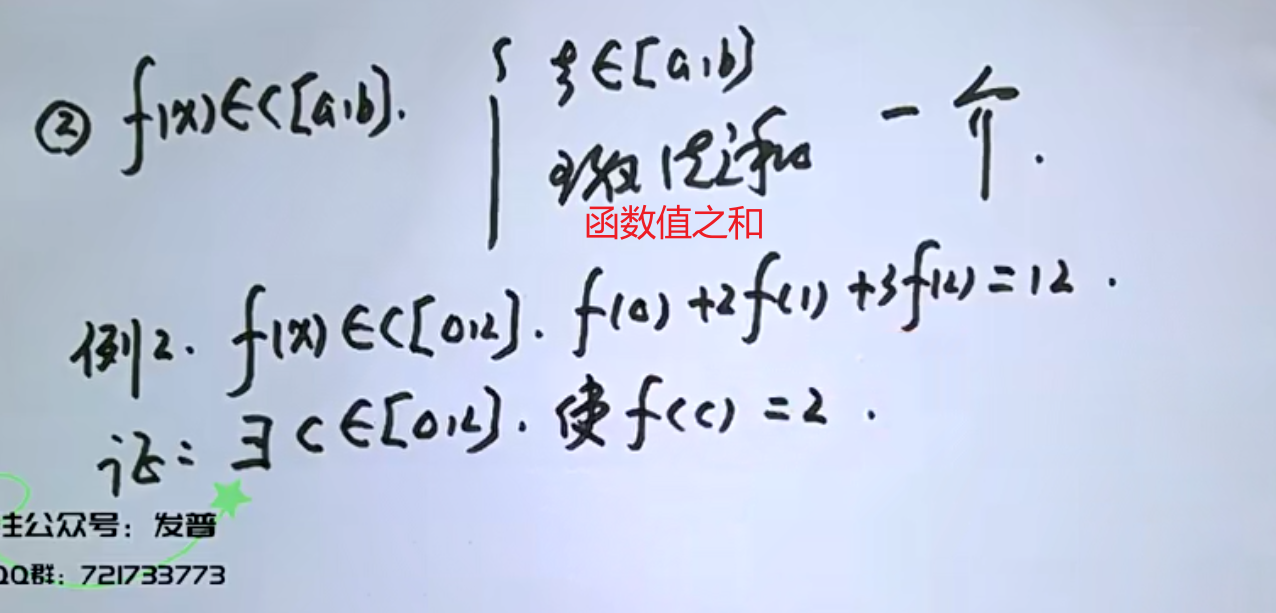 ② f(x)∈C[a,b]. { ξ∈[a,b]
函数值之和 一个.
函数值之和
例2. f(x)∈C[0,2]. f(0)+2f(1)+3f(2)=12.
证: ∃c∈[0,2]. 使f(c)=2.
主公众号：发普
QQ群：721733773